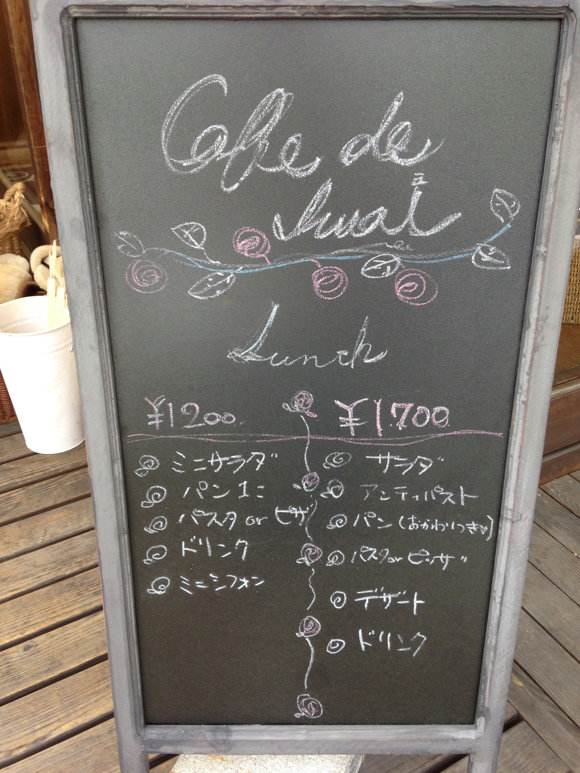 Cafe de
Lunch
¥1200.
ミニサラダ
パン1コ
パスタ or ピザ
ドリンク
ミニシフォン
¥1.700
サラダ
アンティパスト
パン(おかわりつき♡)
パスタ or ピッザ
デザート
ドリンク